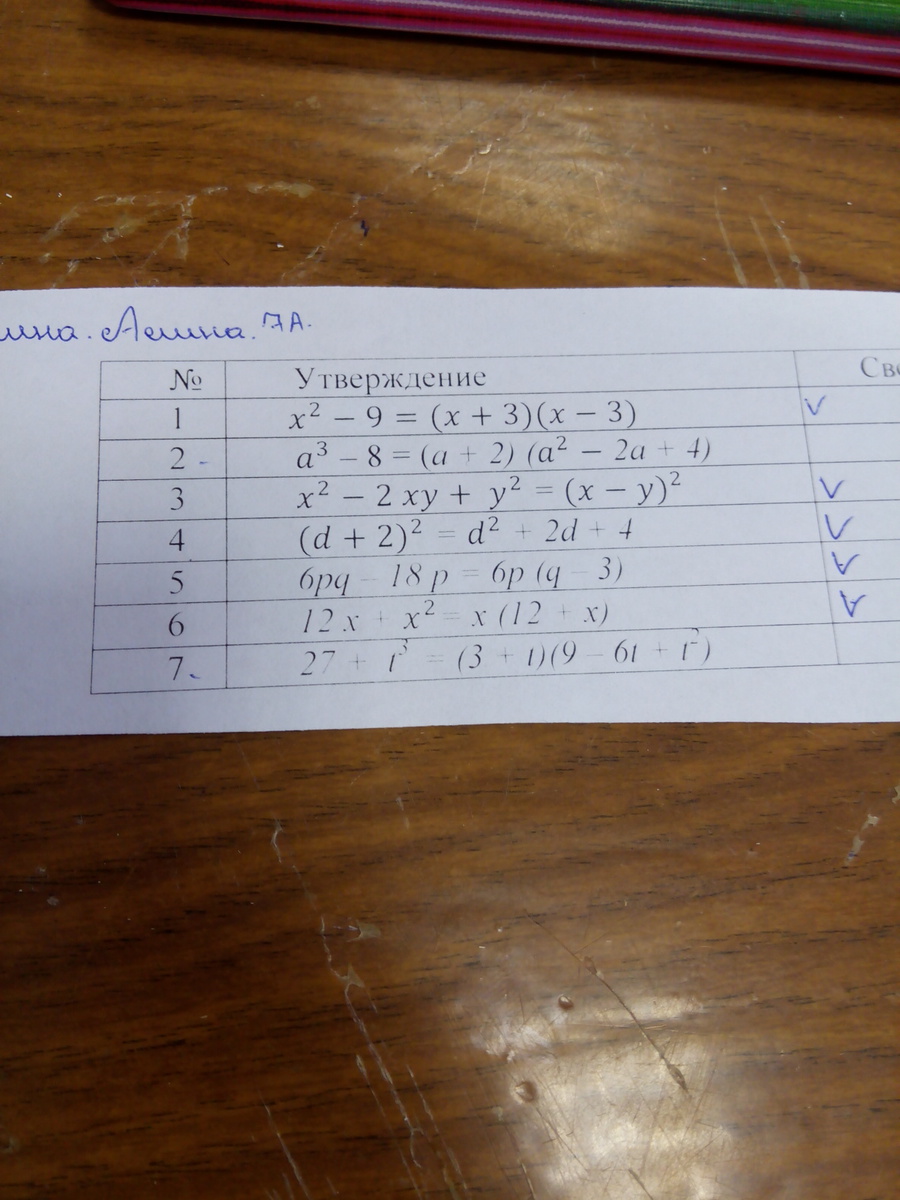 Алина. 7А.
№ Утверждение
1 x² − 9 = (x + 3)(x − 3) V
2 - a³ − 8 = (a + 2) (a² − 2a + 4)
3 x² − 2 xy + y² = (x − y)² V
4 (d + 2)² = d² + 2d + 4 V
5 6pq − 18 p = 6p (q − 3) V
6 12 x + x² = x (12 + x) V
7 - 27 + t³ = (3 + t)(9 − 6t + t²)